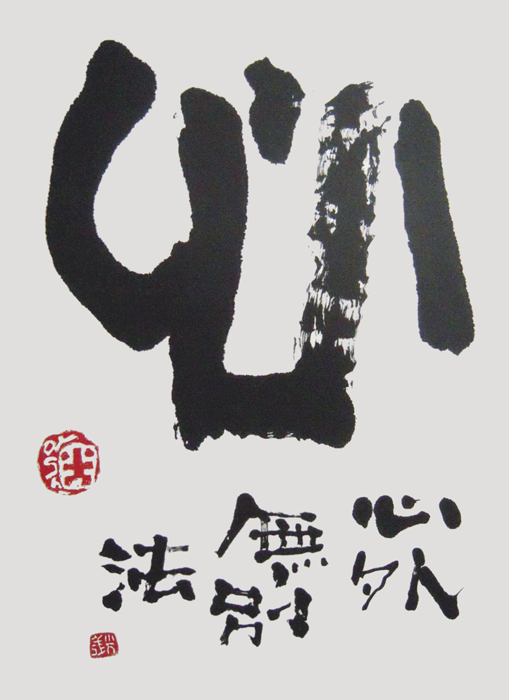 心
心外
無別
法